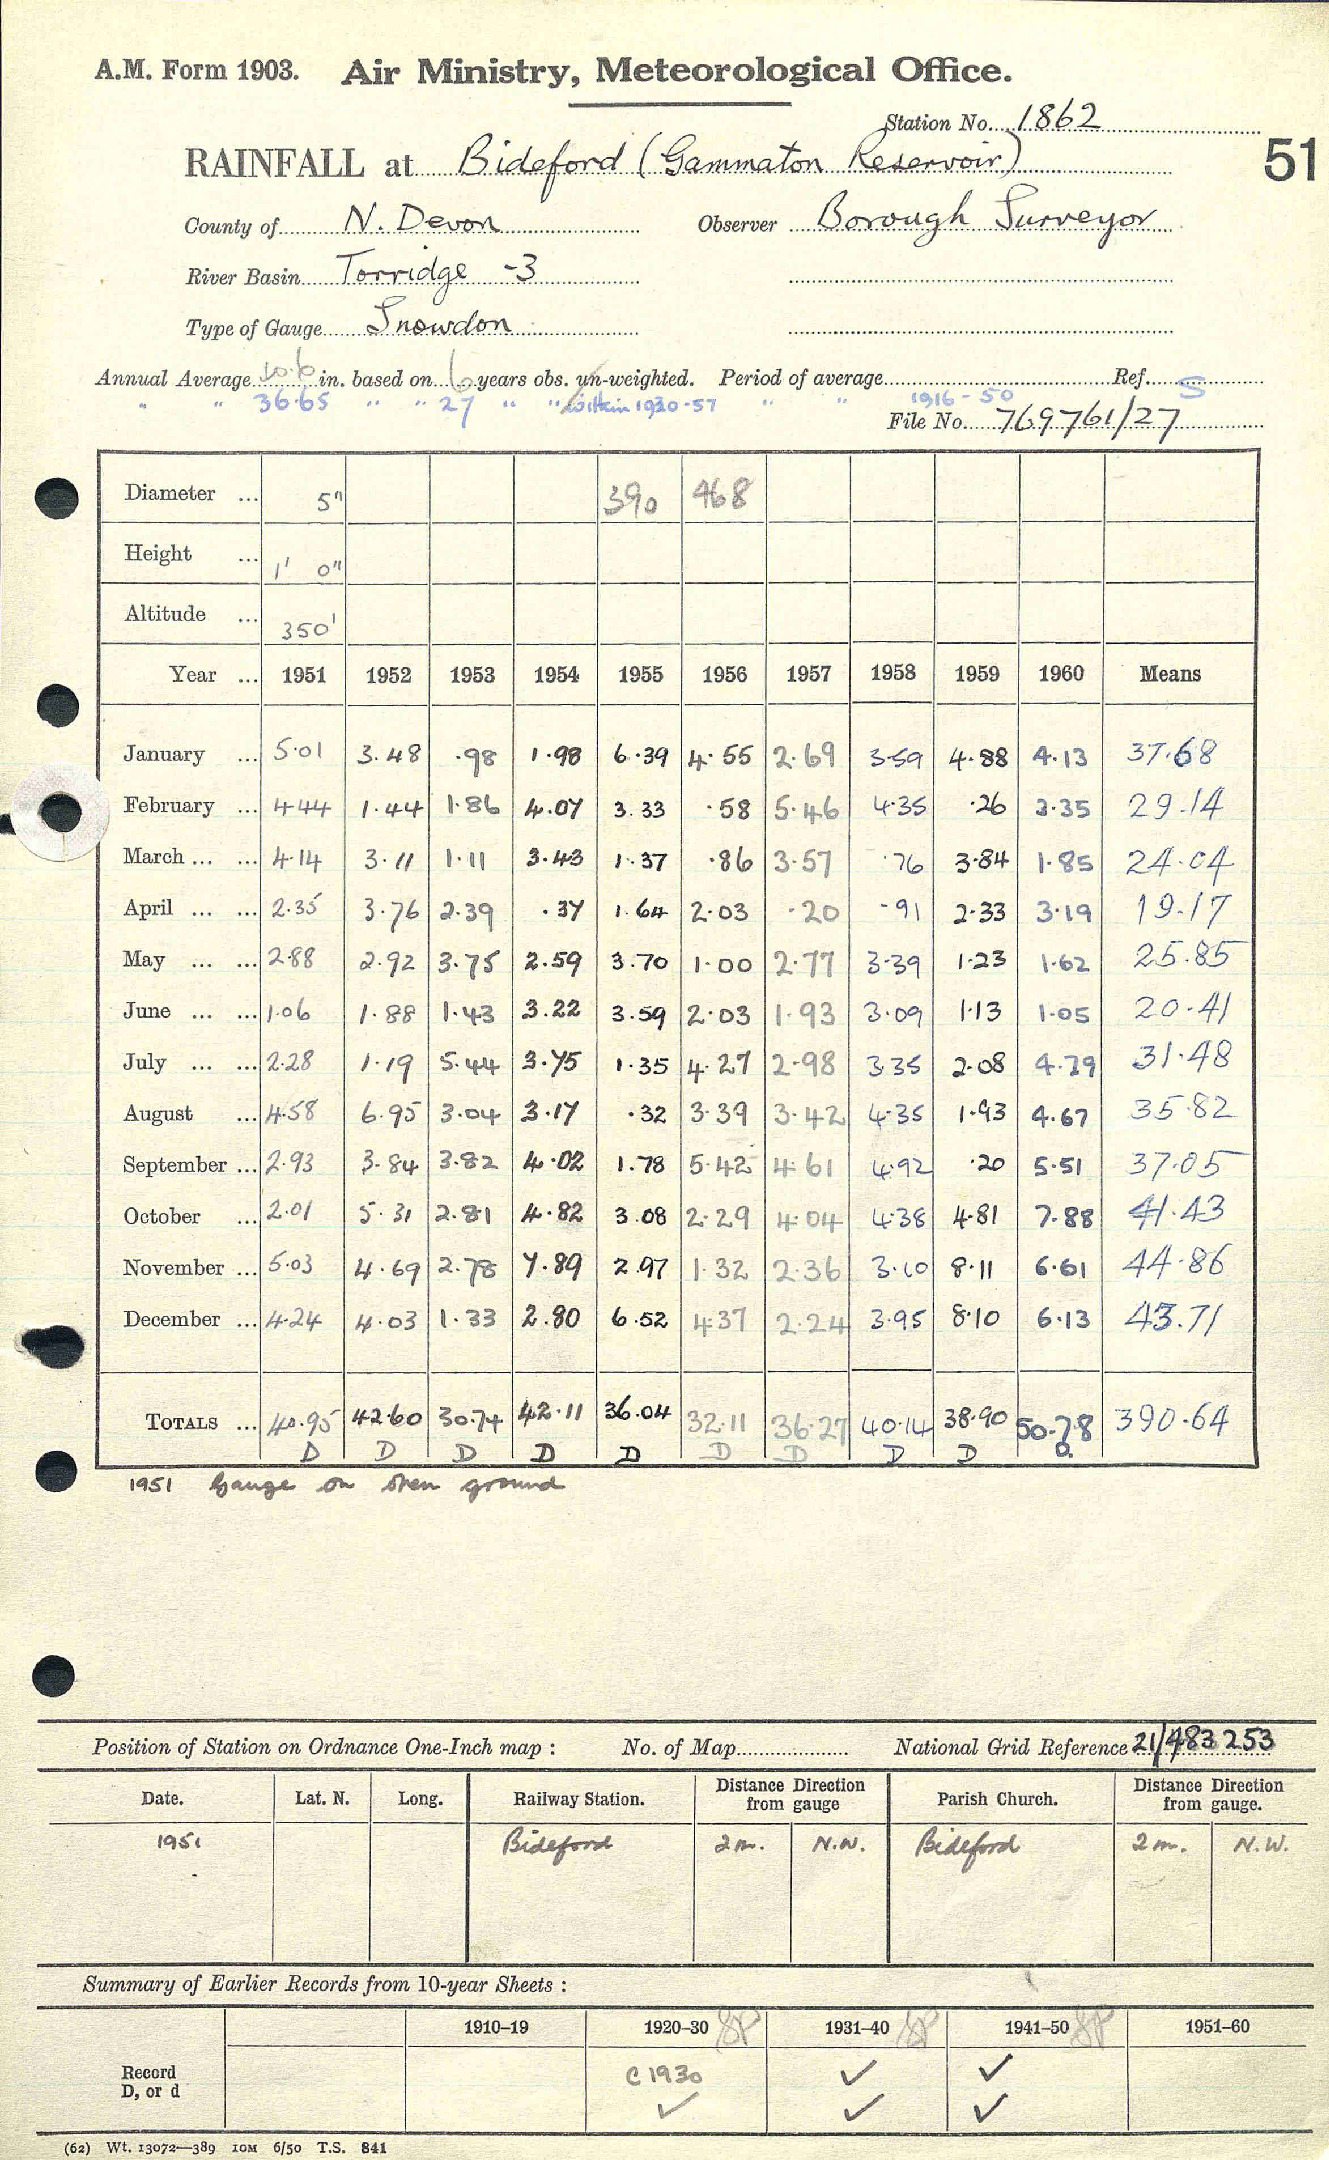 A.M. Form 1903. Air Ministry, Meteorological Office.
Station No. 1862
RAINFALL at Bideford (Gammaton Reservoir)
51
County of N. Devon Observer Borough Surveyor
River Basin Torridge -3
Type of Gauge Snowdon
Annual Average in. based on 6 years obs. un-weighted. Period of average Ref. S
" " 36.65 " " 27 " " within 1930-57 " " 1916-50
File No. 769761/27
Diameter ... 5" 390 468
Height ... 1' 0"
Altitude ... 350'
Year ... 1951 1952 1953 1954 1955 1956 1957 1958 1959 1960 Means
January ... 5.01 3.48 .98 1.98 6.39 4.55 2.69 3.59 4.88 4.13 37.68
February ... 4.44 1.44 1.86 4.07 3.33 .58 5.46 4.35 .26 3.35 29.14
March ... ... 4.14 3.11 1.11 3.43 1.37 .86 3.57 .76 3.84 1.85 24.04
April ... ... 2.35 3.76 2.39 .37 1.64 2.03 .20 .91 2.33 3.19 19.17
May ... ... 2.88 2.92 3.75 2.59 3.70 1.00 2.77 3.39 1.23 1.62 25.85
June ... ... 1.06 1.88 1.43 3.22 3.59 2.03 1.93 3.09 1.13 1.05 20.41
July ... ... 2.28 1.19 5.44 3.75 1.35 4.27 2.98 3.35 2.08 4.79 31.48
August ... 4.58 6.95 3.04 3.17 .32 3.39 3.42 4.35 1.93 4.67 35.82
September ... 2.93 3.84 3.82 4.02 1.78 5.42 4.61 4.92 .20 5.51 37.05
October ... 2.01 5.31 2.81 4.82 3.08 2.29 4.04 4.38 4.81 7.88 41.43
November ... 5.03 4.69 2.78 7.89 2.97 1.32 2.36 3.10 8.11 6.61 44.86
December ... 4.24 4.03 1.33 2.80 6.52 4.37 2.24 3.95 8.10 6.13 43.71
TOTALS ... 40.95 42.60 30.74 42.11 36.04 32.11 36.27 40.14 38.90 50.78 390.64
D D D D D D D D D D
1951 Gauge on open ground
Position of Station on Ordnance One-Inch map : No. of Map National Grid Reference 21/483 253
Date. Lat. N. Long. Railway Station. Distance Direction from gauge Parish Church. Distance Direction from gauge.
1951 Bideford 2 m. N.W. Bideford 2 m. N.W.
Summary of Earlier Records from 10-year Sheets :
1910–19 1920–30 1931–40 1941–50 1951–60
Record C 1930 ✓ ✓
D, or d ✓ ✓ ✓
(62) Wt. 13072—389 10M 6/50 T.S. 841